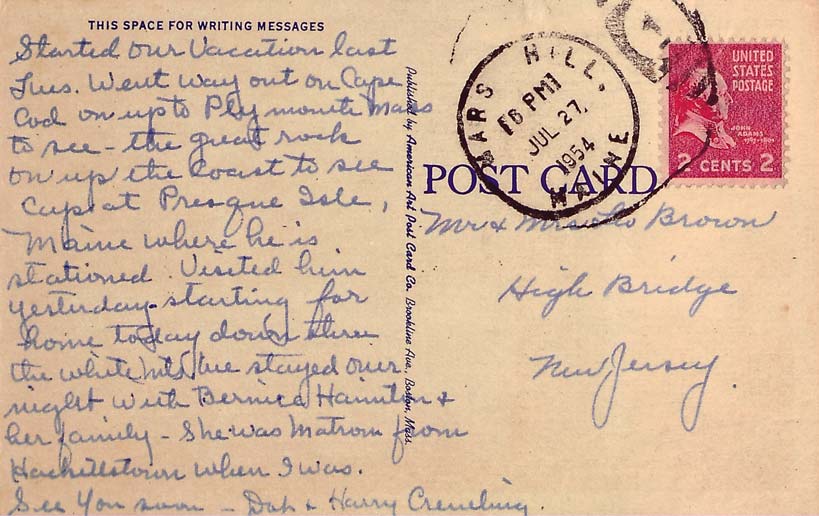 THIS SPACE FOR WRITING MESSAGES
Started our Vacation last
Tues. Went way out on Cape
Cod on up to Plymouth Mass
to see - the great rock
on up the Coast to see
at Presque Isle,
Maine where he is
stationed. Visited him
yesterday - starting for
home today down thru
the white Mts. we stayed over
night with Bernice &
her family - She was Matron from
Hackettstown when I was.
See You soon - & Harry
Published by American Art Post Card Co., Brookline Ave., Boston, Mass.
POST CARD
MARS HILL, MAINE
6 PM
JUL 27,
1954
UNITED
STATES
POSTAGE
JOHN
ADAMS
1797-1801
2 CENTS 2
Mr & Mrs Brown
High Bridge
New Jersey.